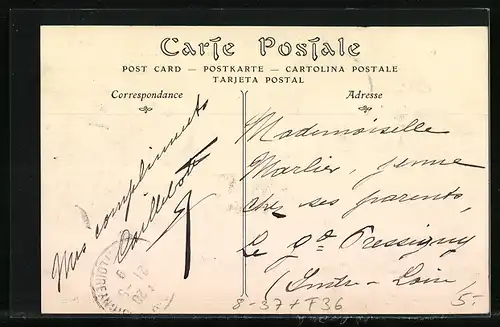 Carte Postale
POST CARD — POSTKARTE — CARTOLINA POSTALE
TARJETA POSTAL
Correspondance
Adresse
Mes compliments
Caillebote
Mademoiselle
Marlier, jeune
chez ses parents,
Le Gd Pressigny
(Indre-Loire)
8-37+F36
5-